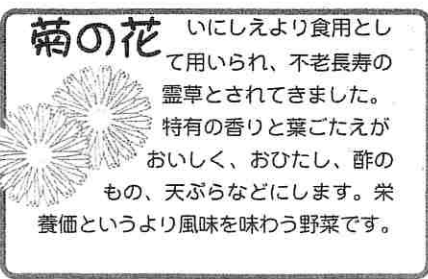 菊の花
いにしえより食用とし
て用いられ、不老長寿の
霊草とされてきました。
特有の香りと葉ごたえが
おいしく、おひたし、酢の
もの、天ぷらなどにします。栄
養価というより風味を味わう野菜です。